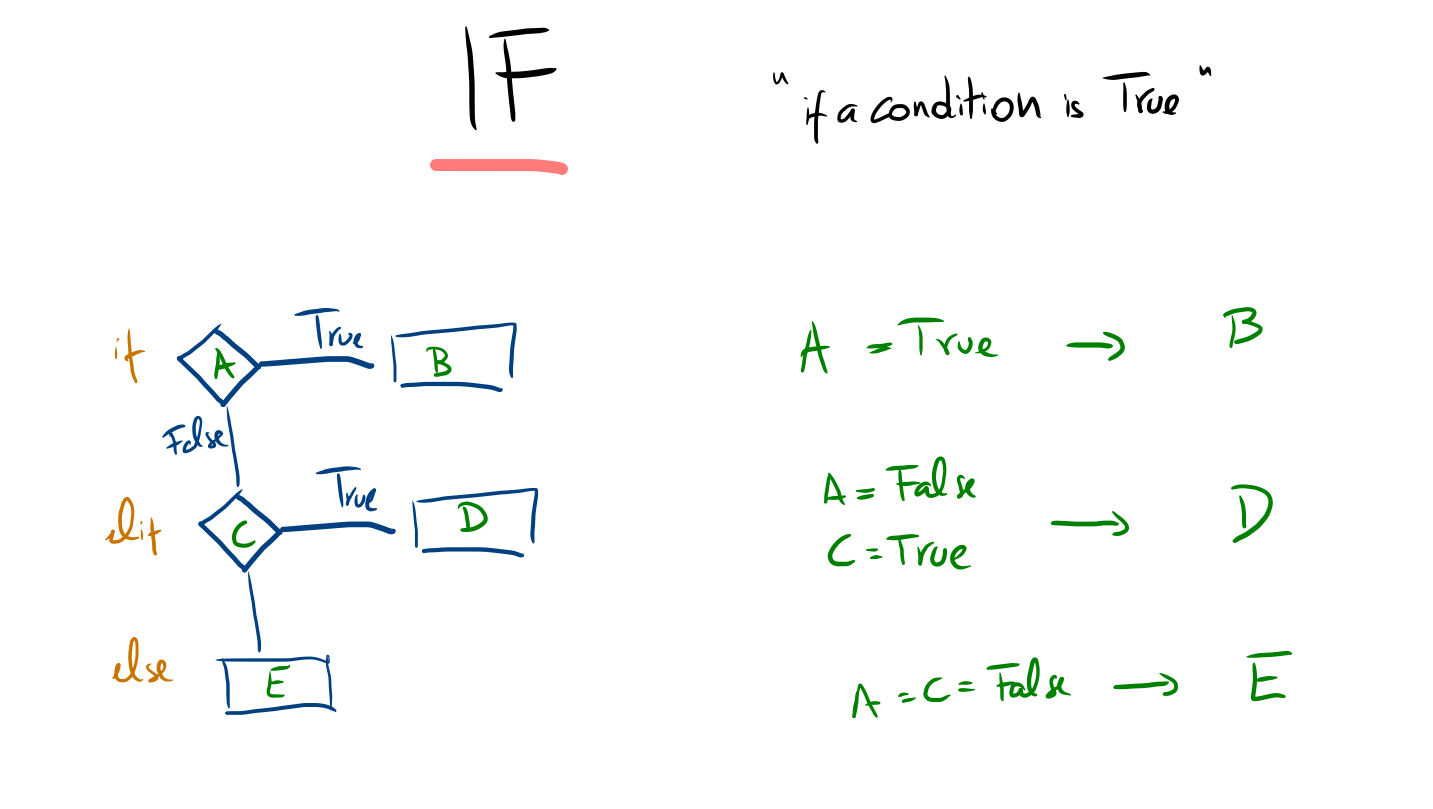 IF
"if a condition is True"
if A True B
False
elif C True D
else E
A = True → B
A = False
C = True → D
A = C = False → E